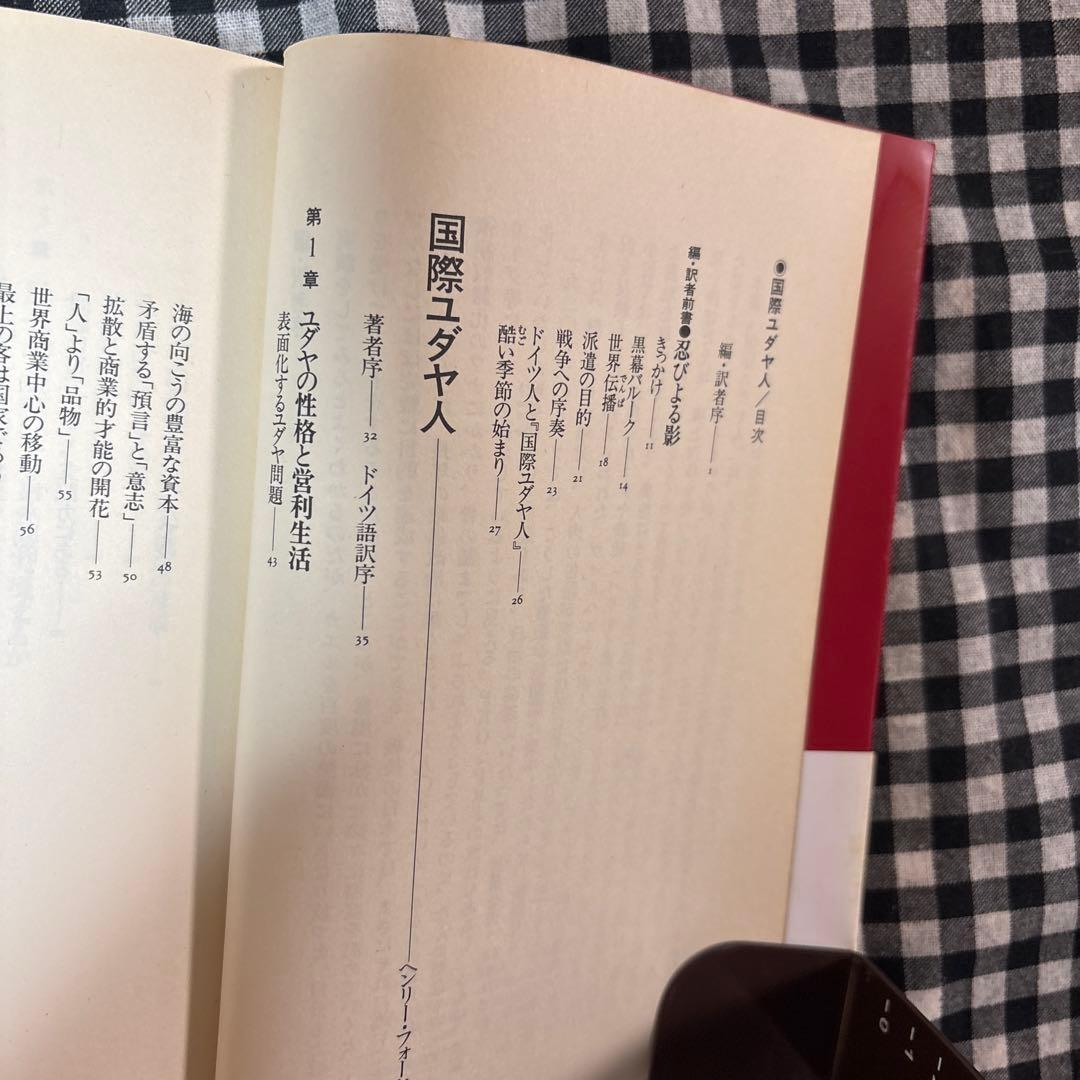 ●国際ユダヤ人／目次
編・訳者序——1
編・訳者前書●忍びよる影
きっかけ——11
黒幕バルーク——14
世界伝播——18
でんぱ
派遣の目的——21
戦争への序奏——23
ドイツ人と『国際ユダヤ人』——26
酷い季節の始まり——27
むご
国際ユダヤ人——ヘンリー・フォー
著者序——32 ドイツ語訳序——35
第1章 ユダヤの性格と営利生活
表面化するユダヤ問題——43
海の向こうの豊富な資本——48
矛盾する「預言」と「意志」——50
拡散と商業的才能の開花——53
「人」より「品物」——55
世界商業中心の移動——56
最上の客は国家で